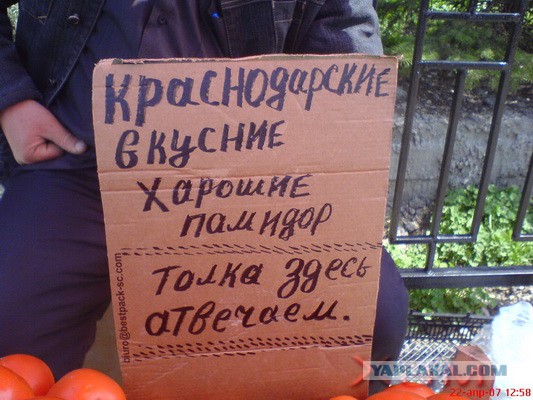 Краснодарские
вкусние
харошие
памидор
толка здесь
атвечаем.
biuro@bestpack-sc.com
YAPLAKAL.COM
22-апр-07 12:58